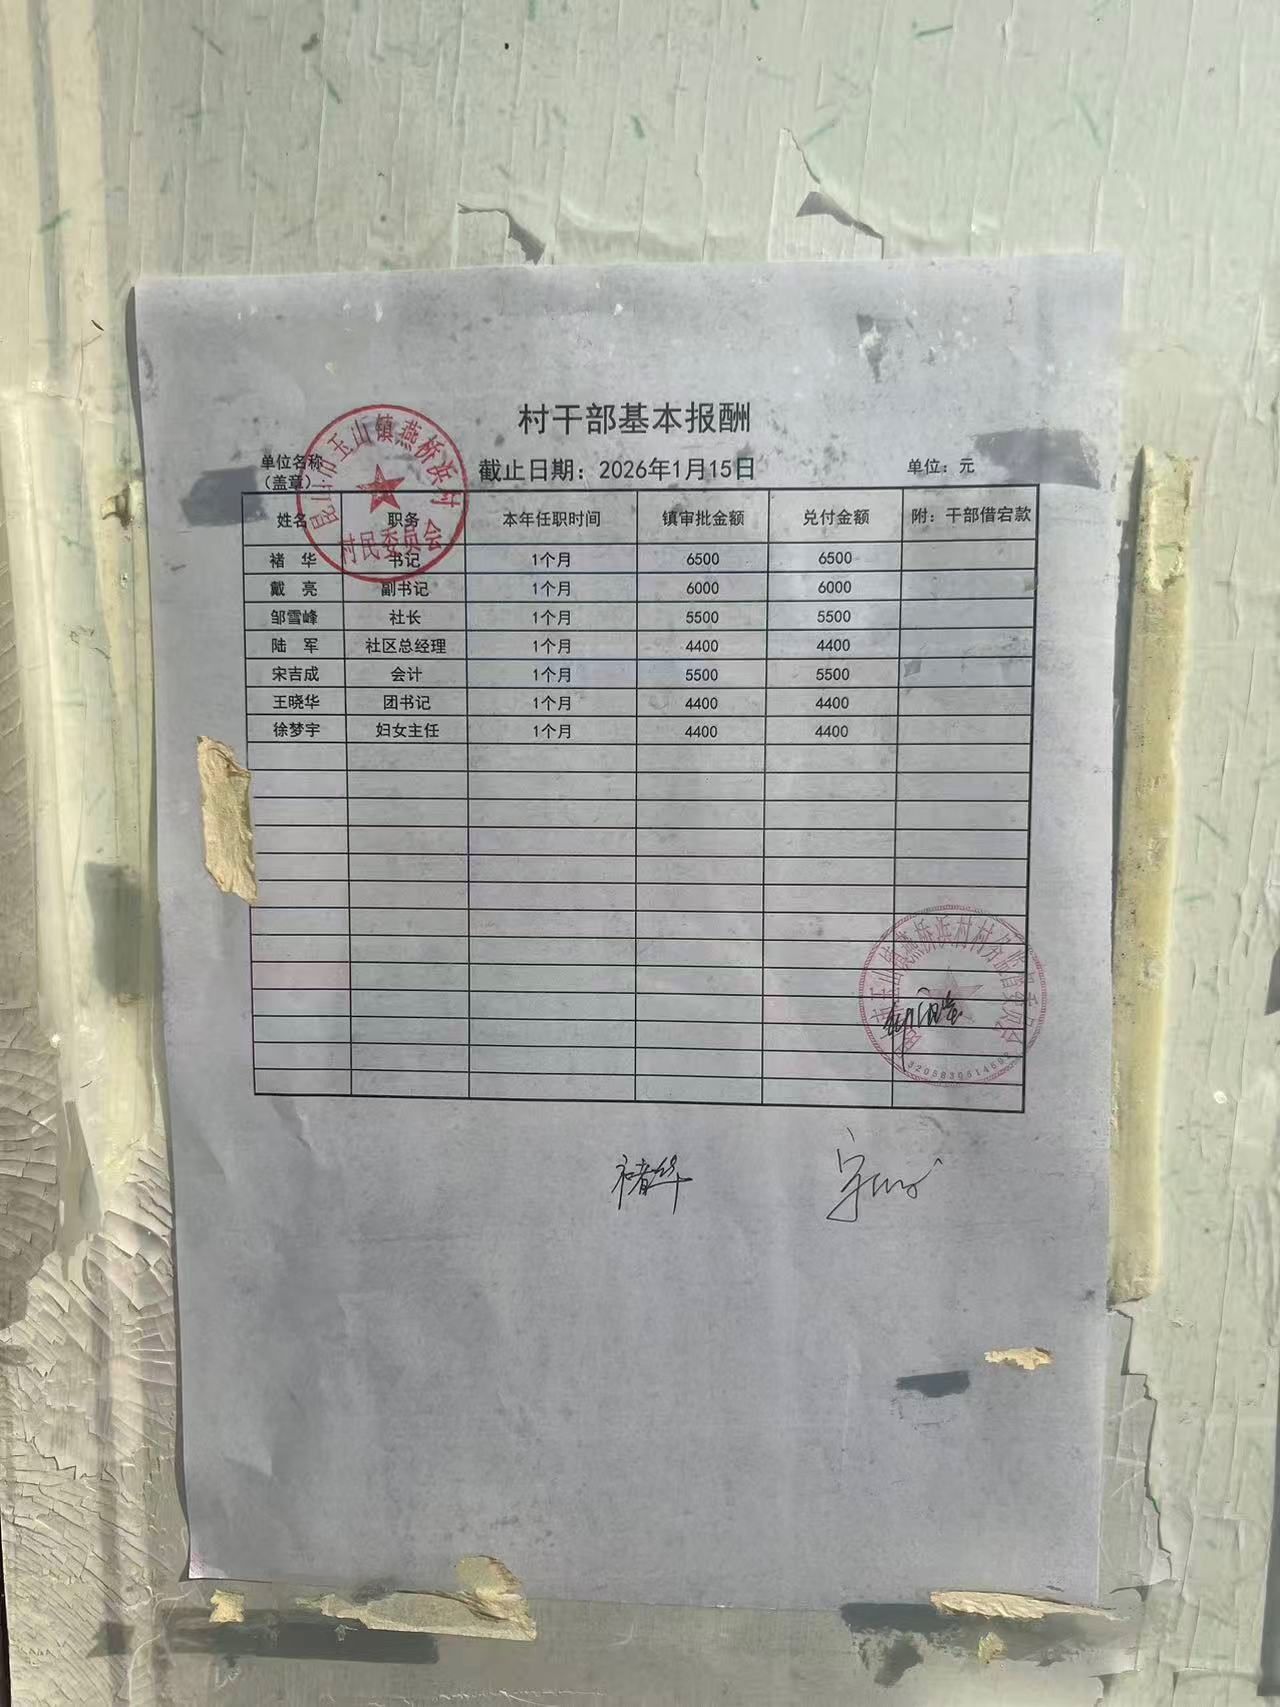 村干部基本报酬
单位名称
(盖章)
截止日期：2026年1月15日
单位：元
昆山市玉山镇燕桥浜村
村民委员会
姓名 职务 本年任职时间 镇审批金额 兑付金额 附：干部借宕款
褚 华 书记 1个月 6500 6500
戴 亮 副书记 1个月 6000 6000
邹雪峰 社长 1个月 5500 5500
陆 军 社区总经理 1个月 4400 4400
宋吉成 会计 1个月 5500 5500
王晓华 团书记 1个月 4400 4400
徐梦宇 妇女主任 1个月 4400 4400
市玉山镇燕桥浜村村务监督委员会
褚华